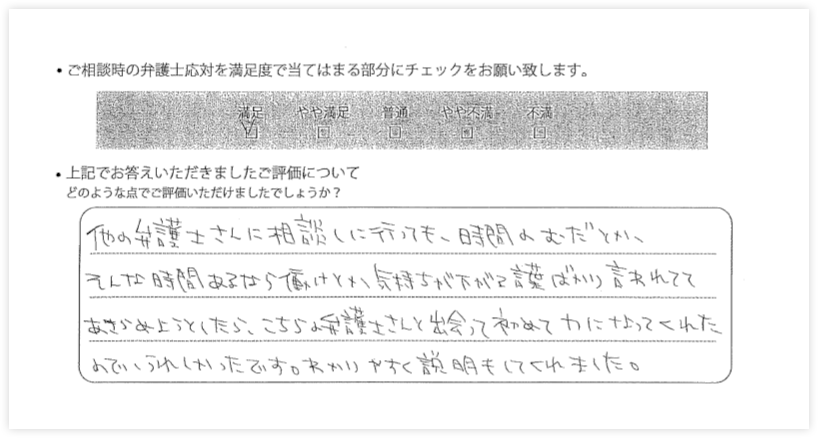 ・ご相談時の弁護士応対を満足度で当てはまる部分にチェックをお願い致します。
満足 やや満足 普通 やや不満 不満
・上記でお答えいただきましたご評価について
どのような点でご評価いただけましたでしょうか？
他の弁護士さんに相談しに行っても、時間のむだとか、
そんな時間あるなら働けとか、気持ちが下がる言葉ばかり言われてて
あきらめようとしたら、こちらの弁護士さんと出会って初めて力になってくれた
ので、うれしかったです。わかりやすく説明もしてくれました。